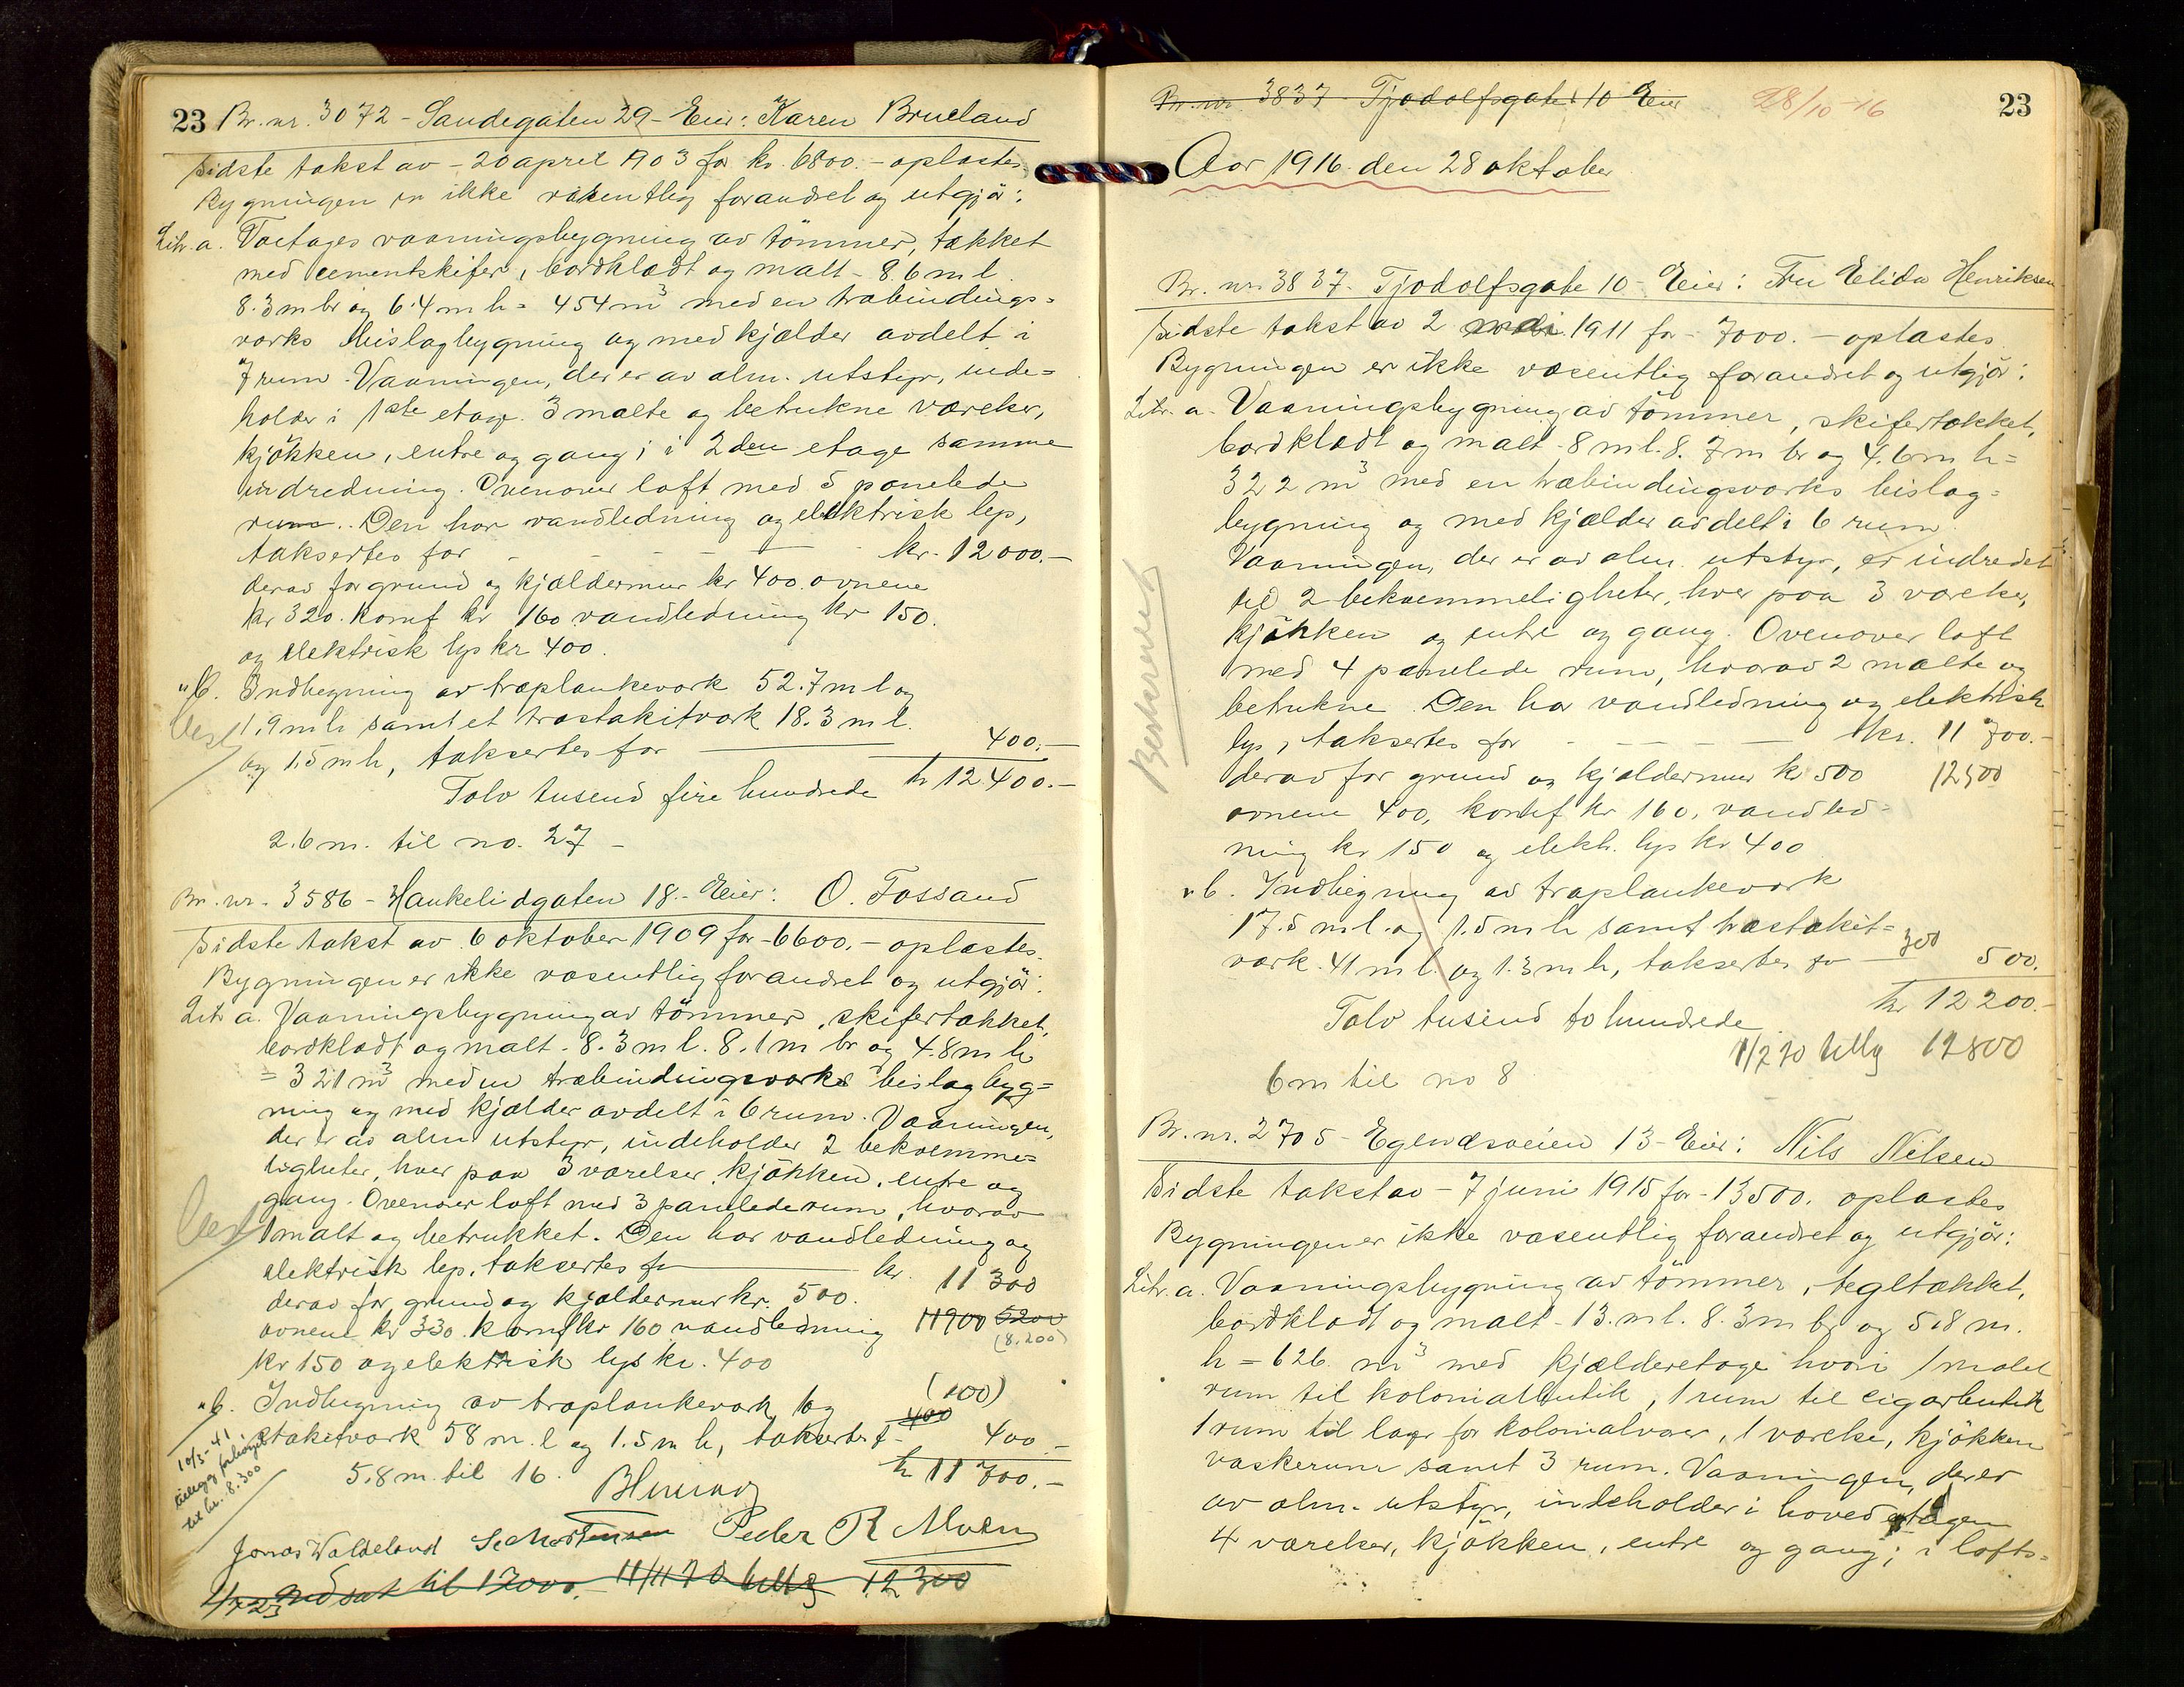 23 Br. nr. 3072 - Sandegaten 29 - Eier: Karen Brueland
Sidste takst av - 20 april 1903 for kr. 6800. - oplæstes
Bygningen er ikke væsentlig forandret og utgjör:
Litr. a. Toetages vaaningsbygning av tömmer, tækket
med cementskifer, bordklædt og malt - 8.6 m l
8.3 m br og 6.4 m h = 454 m³ med en træbindings-
værks bislagbygning og med kjælder avdelt i
7 rum. Vaaningen, der er av alm. utstyr, inde-
holder i 1ste etage 3 malte og betrukne værelser,
kjökken, entre og gang; i 2den etage samme
indredning. Ovenover loft med 5 panelede
rum. Den har vandledning og elektrisk lys,
taksertes for - - - - kr. 12000.-
derav for grund og kjældermur kr 400. ovnene
kr 320. komf kr 160 vandledning kr 150.
og elektrisk lys kr 400.
" b. Indhegning av træplankeværk 52.7 m l og
1.9 m h samt et træstakitværk 18.3 m l.
og 1.5 m h, taksertes for 400.-
Tolv tusend fire hundrede kr 12400.-
2.6 m. til no. 27 -
Br. nr. 3586 - Haukelidgaten 18. - Eier: O. Fossand
Sidste takst av 6 oktober 1909 for - 6600. - oplæstes.
Bygningen er ikke væsentlig forandret og utgjör:
Litr a. Vaaningsbygning av tömmer, skifertækket,
bordklædt og malt - 8.3 m l. 8.1 m br og 4.8 m h
= 321 m³ med en træbindingsværks bislagbyg-
ning og med kjælder avdelt i 6 rum. Vaaningen,
der er av alm utstyr, indeholder 2 bekvemme-
ligheter, hver paa 3 værelser, kjökken, entre og
gang. Ovenover loft med 3 panelede rum, hvorav
1 malt og betrukket. Den har vandledning og
elektrisk lys, taksertes for kr. 11300
derav for grund og kjældermur kr. 500.
ovnene kr 330. komf kr 160 vandledning 11900 5200
(8.200)
kr 150 og elektrisk lys kr. 400
" b. Indhegning av træplankeværk og (100)
stakitværk 58 m. l og 1.5 m h, taksertes f - 400 400.-
10/5-41
tillegg forhöiget
til kr. 8.300
5.8 m. til 16. kr 11700.-
Jonas Waldeland S. Mortensen Peder R Moen
nedsat til 12000. 11/11 20 tillæg 12300
Br. nr. 3837 - Tjodolfsgate 10 Eier 28/10 - 16 23
Aar 1916 den 28 oktober
Br. nr. 3837 - Tjodolfsgate 10 - Eier: Fru Elida Henriksen
Sidste takst av 2 mai 1911 for - 7000. - oplæstes.
Bygningen er ikke væsentlig forandret og utgjör:
Litr. a. Vaaningsbygning av tömmer, skifertækket,
bordklædt og malt - 8 m l. 8.7 m br og 4.6 m h =
322 m³ med en træbindingsværks bislag-
bygning og med kjælder avdelt i 6 rum.
Vaaningen, der er av alm. utstyr, er indredet
til 2 bekvemmeligheter, hver paa 3 værelser,
kjökken og entre og gang. Ovenover loft
med 4 panelede rum, hvorav 2 malte og
betrukne. Den har vandledning og elektrisk
lys, taksertes for - - - - kr. 11700.-
derav for grund og kjældermur kr 500 12500
ovnene 400, komf kr 160, vandled-
ning kr 150 og elekt. lys kr 400
Beskrevet
" b. Indhegning av træplankeværk
17.5 m l. og 1.5 m h samt træstakit-
værk 41 m l og 1.3 m h, taksertes for 300 500.
Tolv tusend to hundrede kr 12200.-
1/2 20 tillæg 12800
6 m til no 8
Br. nr. 2705 - Egenæsveien 13 - Eier: Nils Nilsen
Sidste takst av - 7 juni 1915 for - 13500. oplæstes
Bygningen er ikke væsentlig forandret og utgjör:
Litr. a. Vaaningsbygning av tömmer, tegltækket,
bordklædt og malt - 13. m l. 8.3 m br og 5.8 m.
h = 626 m³ med kjælderetage hvori 1 malet
rum til kolonialbutik, 1 rum til cigarbutik
1 rum til lager for kolonialvarer, 1 værelse, kjökken
vaskerum samt 3 rum. Vaaningen, der er
av alm. utstyr, indeholder i hovedetagen
4 værelser, kjökken, entre og gang; i lofts-